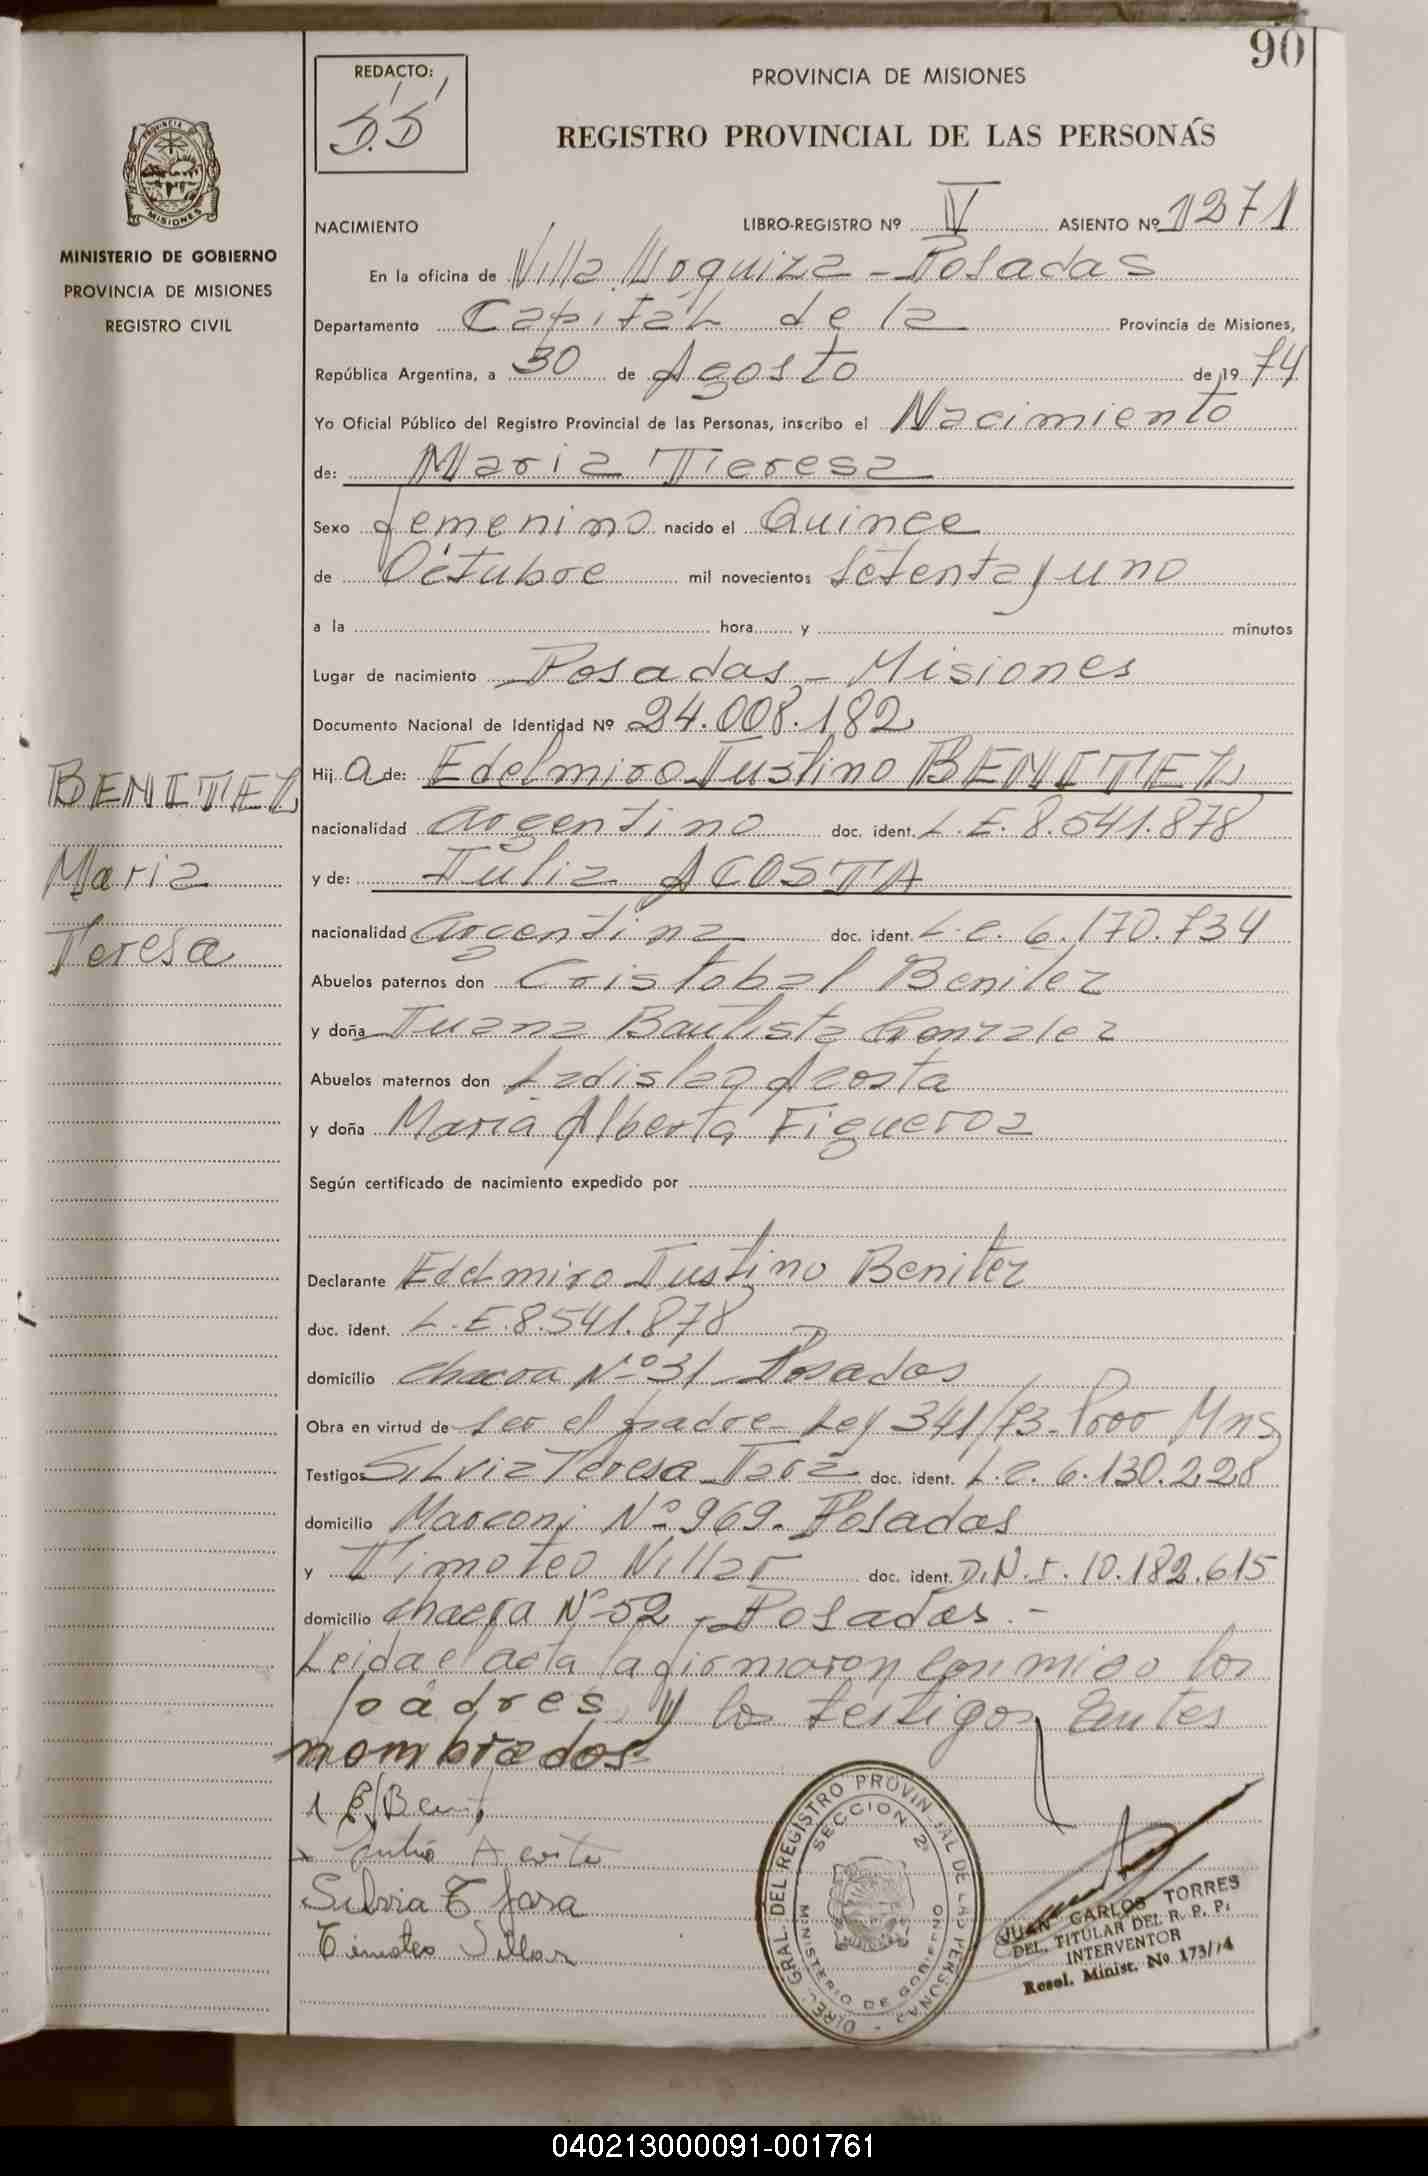 90
REDACTO:
PROVINCIA DE MISIONES
REGISTRO PROVINCIAL DE LAS PERSONAS
PROVINCIA DE MISIONES
MINISTERIO DE GOBIERNO
PROVINCIA DE MISIONES
REGISTRO CIVIL
NACIMIENTO LIBRO-REGISTRO Nº IV ASIENTO Nº 1271
En la oficina de Villa Urquiza - Posadas
Departamento Capital de la Provincia de Misiones,
República Argentina, a 30 de Agosto de 1974
Yo Oficial Público del Registro Provincial de las Personas, inscribo el Nacimiento
de: Maria Teresa
Sexo femenino nacido el Quince
de Octubre mil novecientos setenta y uno
a la hora y minutos
Lugar de nacimiento Posadas - Misiones
Documento Nacional de Identidad Nº 24.008.182
Hija de: Edelmiro Justino BENITEZ
nacionalidad argentino doc. ident. L.E. 8.541.878
y de: Julia ACOSTA
nacionalidad argentina doc. ident. L.C. 6.170.734
Abuelos paternos don Cristobal Benitez
y doña Juana Bautista Gonzalez
Abuelos maternos don Ladislao Acosta
y doña Maria Alberta Figueroa
Según certificado de nacimiento expedido por
Declarante Edelmiro Justino Benitez
doc. ident. L.E. 8.541.878
domicilio chacra Nº 31 Posadas
Obra en virtud de ser el padre - Ley 341/73 - Mns
Testigos Silvia Teresa Jara doc. ident. L.C. 6.130.228
domicilio Marconi Nº 969 - Posadas
y Timoteo Villar doc. ident. D.N.I. 10.182.615
domicilio chacra Nº 52 - Posadas. -
Leida el acta la firmaron conmigo los
padres y los testigos antes
nombrados
BENITEZ
Maria
Teresa
Julia Acosta
Silvia T Jara
Timoteo Villar
DIREC. GRAL. DEL REGISTRO PROVINCIAL DE LAS PERSONAS
SECCION 2ª
MINISTERIO DE GOBIERNO
JUAN CARLOS TORRES
DEL. TITULAR DEL R. P. P.
INTERVENTOR
Resol. Minist. Nº 173/74
040213000091-001761